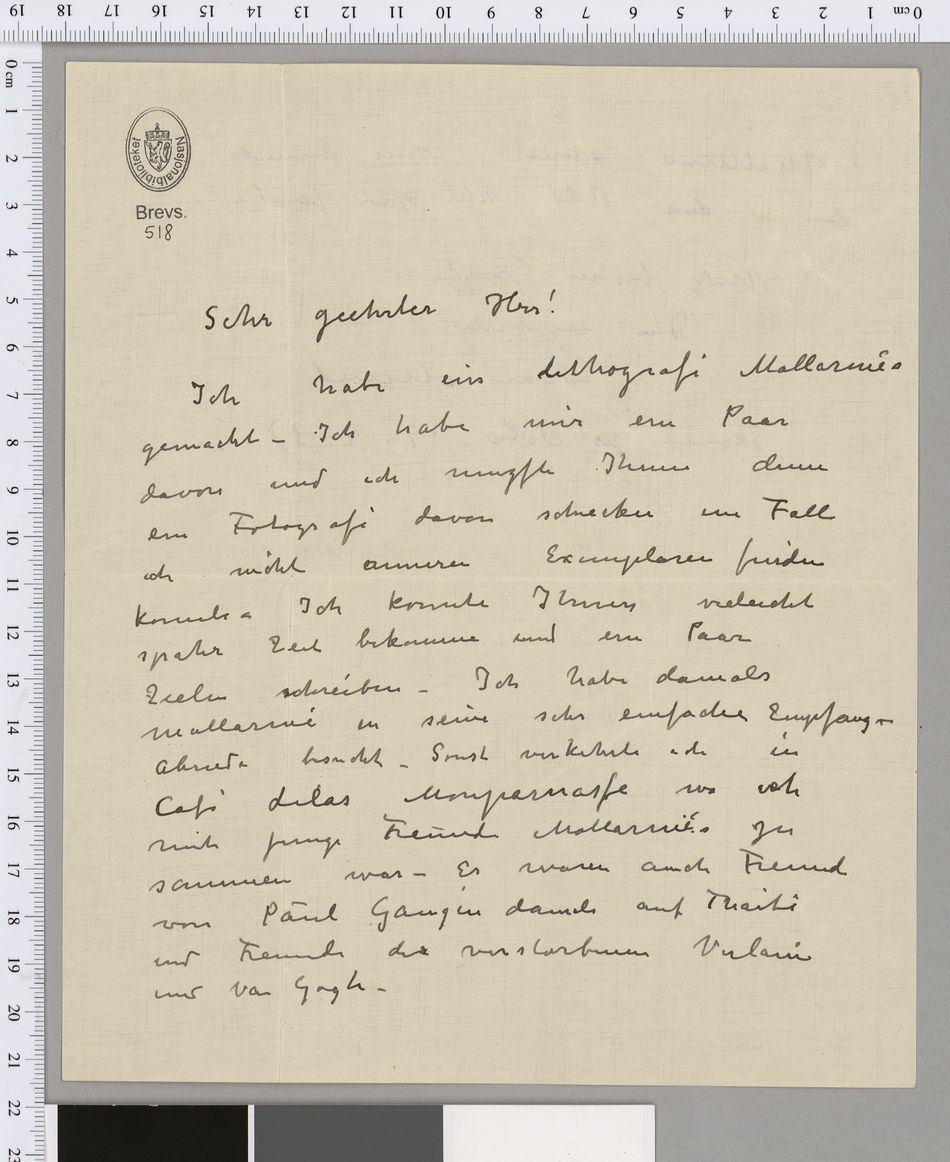 Nasjonalbiblioteket
Brevs.
518
Sehr geehrter Herr!
Ich habe ein Lithografi Mallarmés
gemacht – Ich habe nur ein Paar
davon und ich muszte Ihnen denn
ein Fotografi davon schicken im Fall
ich nicht Exemplaren finden
konnte – Ich konnte Ihnen vieleicht
spater Zeit bekomme und ein Paar
Zielen schreiben – Ich habe damals
Mallarmé in seine sehr einfache Empfang-
abende besucht – Sonst verkehrte ich in
Café de lilas Monparnasse wo ich
mit junge Freunde Mallarmés zu
sammen war – Es waren auch Freund
von Paul Gaugin damals auf Thaiti
und Freunde des verstorbenen Verlain
und Van Gogh –